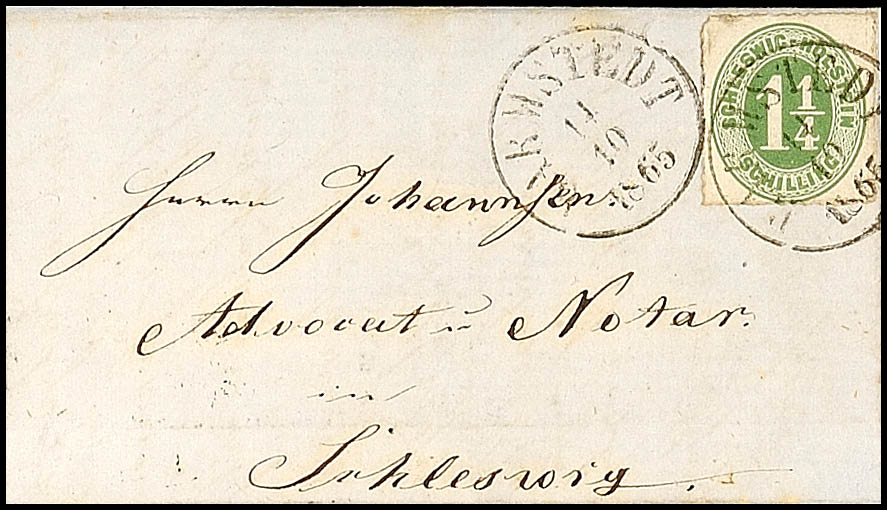 BARMSTEDT
11
10
1865
SCHLESWIG-HOLSTEIN
1 1/4
SCHILLING
11
10
1865
Herrn Johannsen
Advocat u Notar.
in
Schleswig.